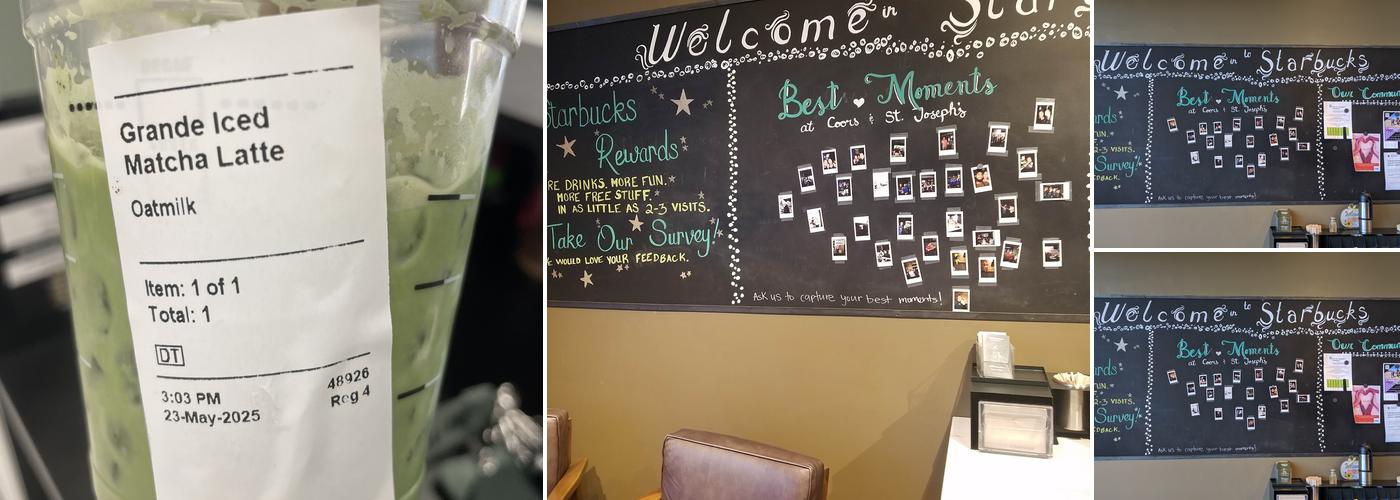 Grande Iced
Matcha Latte
Oatmilk
Item: 1 of 1
Total: 1
DT
48926
3:03 PM
Reg 4
23-May-2025
Welcome in Star
Starbucks
Rewards
RE DRINKS. MORE FUN.
MORE FREE STUFF.
IN AS LITTLE AS 2-3 VISITS.
Take Our Survey!
E WOULD LOVE YOUR FEEDBACK.
Best Moments
at Coors & St. Joseph's
Ask us to capture your best moments!
Welcome in to Starbucks
Best Moments
at Coors & St. Joseph's
Our Commun
ards
FUN.
2-3 VISITS.
Survey!
DBACK.
Ask us to capture your best moments!
Welcome in to Starbucks
Best Moments
at Coors & St. Joseph's
Our Commun
ards
FUN.
2-3 VISITS.
Survey!
DBACK.
Ask us to capture your best moments!